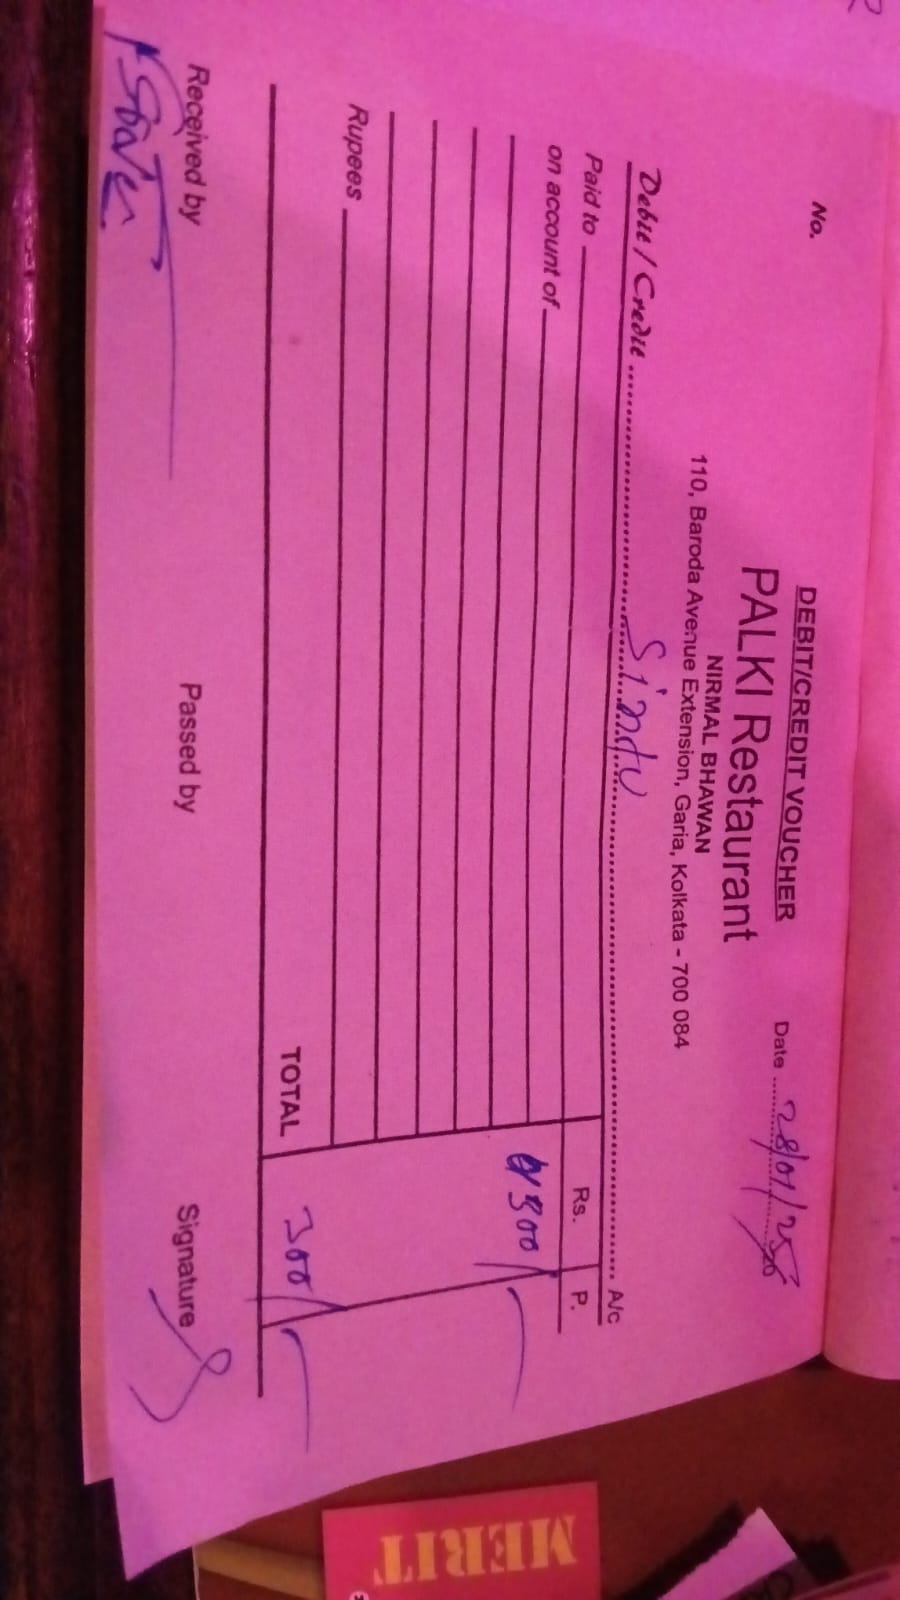 DEBIT/CREDIT VOUCHER
No.
Date 28/01/25
PALKI Restaurant
NIRMAL BHAWAN
110, Baroda Avenue Extension, Garia, Kolkata - 700 084
Debit / Credit Sindu A/c
Paid to
Rs. P.
on account of
300/
Rupees
TOTAL 300/
Received by
Passed by
Signature
MERIT